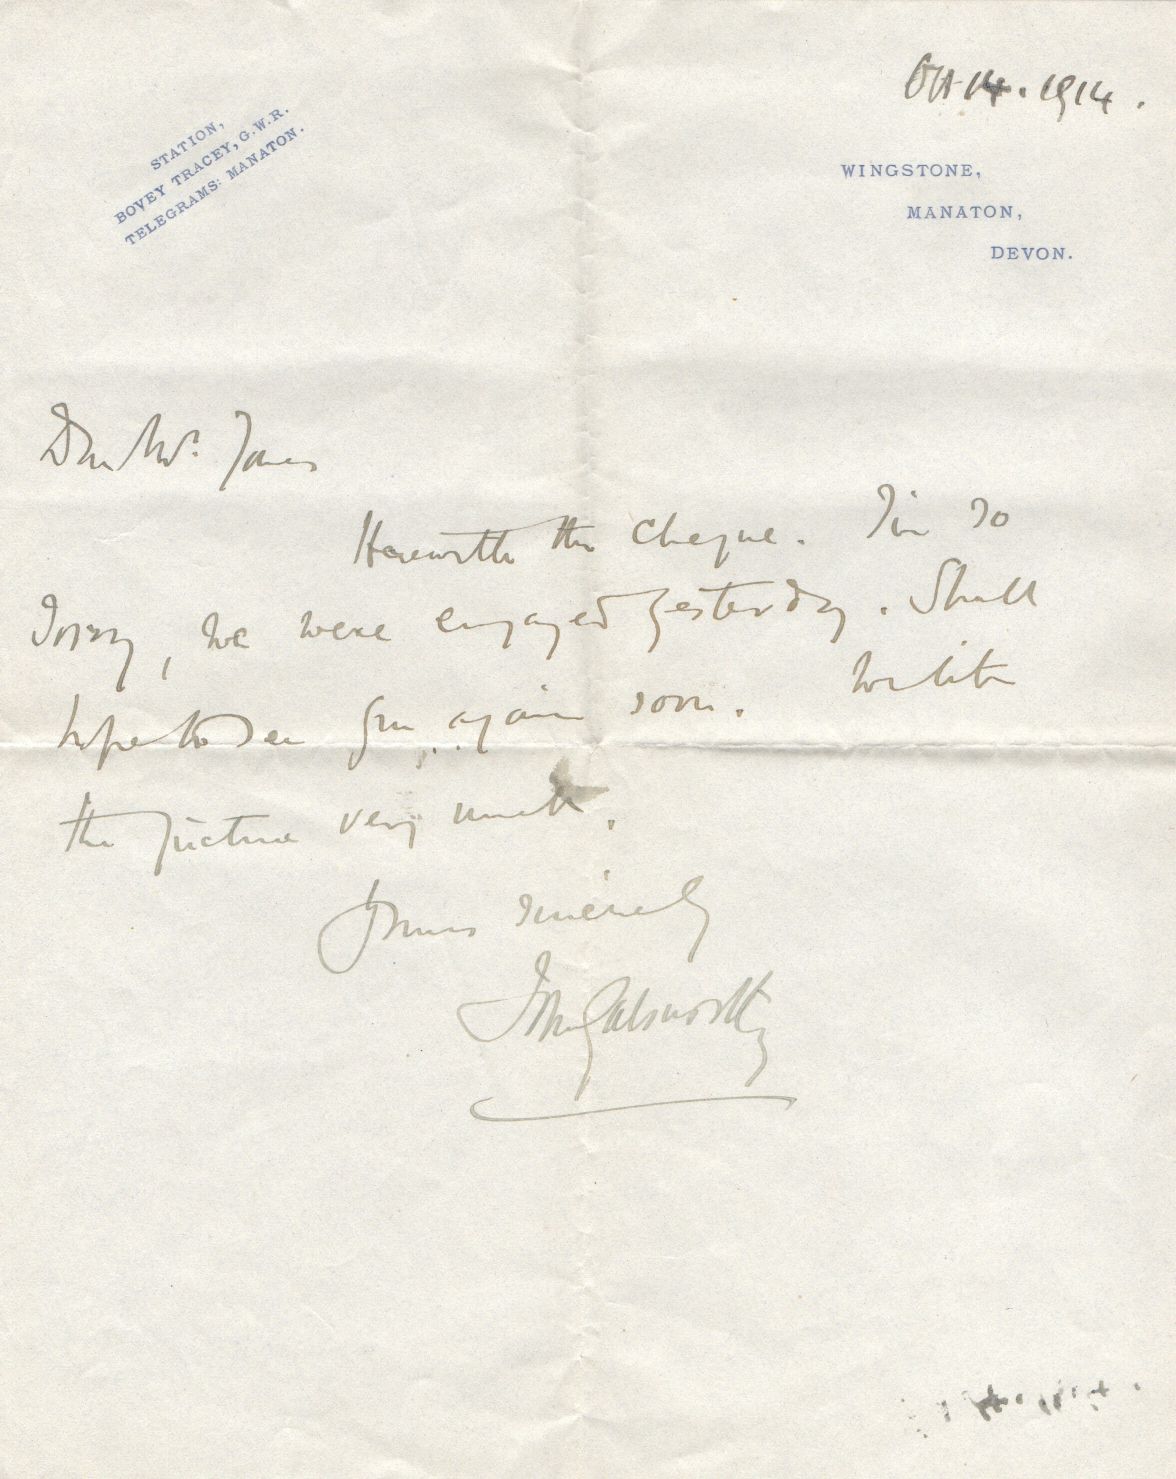 Oct 14. 1914.
STATION,
BOVEY TRACEY, G.W.R.
TELEGRAMS: MANATON.
WINGSTONE,
MANATON,
DEVON.
Dear Mr. Jones
Herewith the cheque. I'm so
sorry, we were engaged yesterday. Shall
hope to see you again soon. We like
the picture very much.
Yours sincerely
John Galsworthy